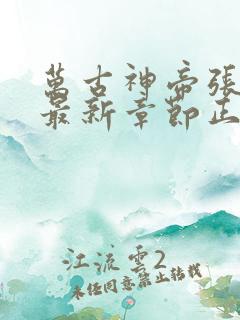 萬古神帝張
最新章節正
江流雲2
未經同意禁止轉載